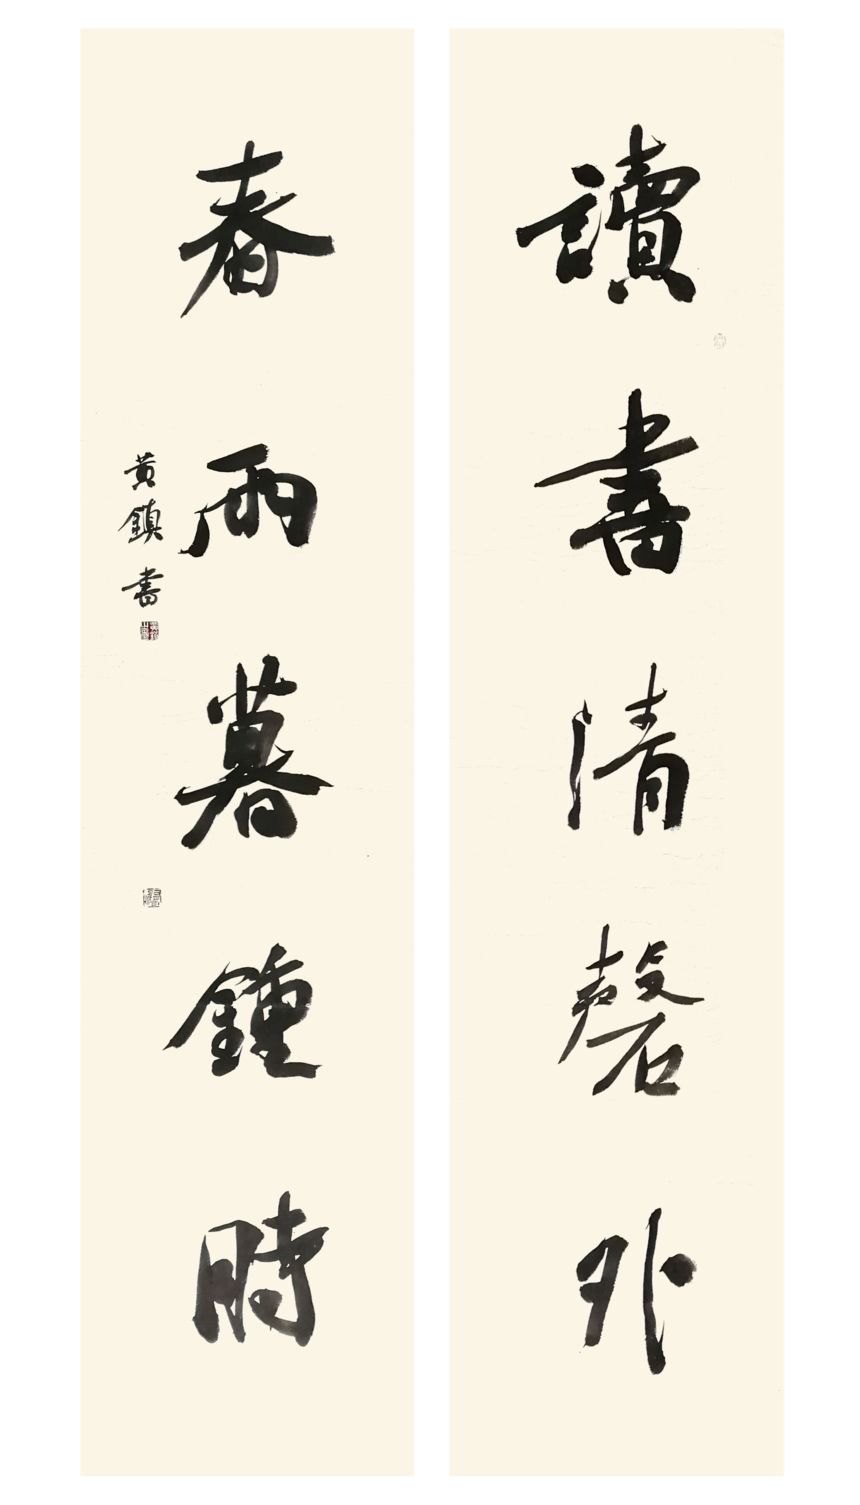 讀書清磬外
春雨暮鍾時
黄鎮書